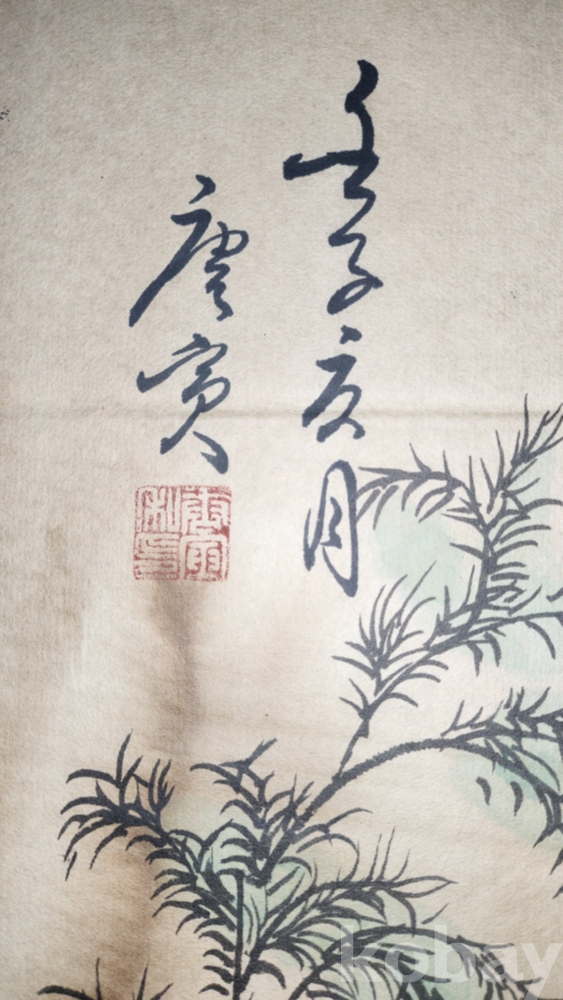 壬子亥月
唐寅
唐寅私印
kobay